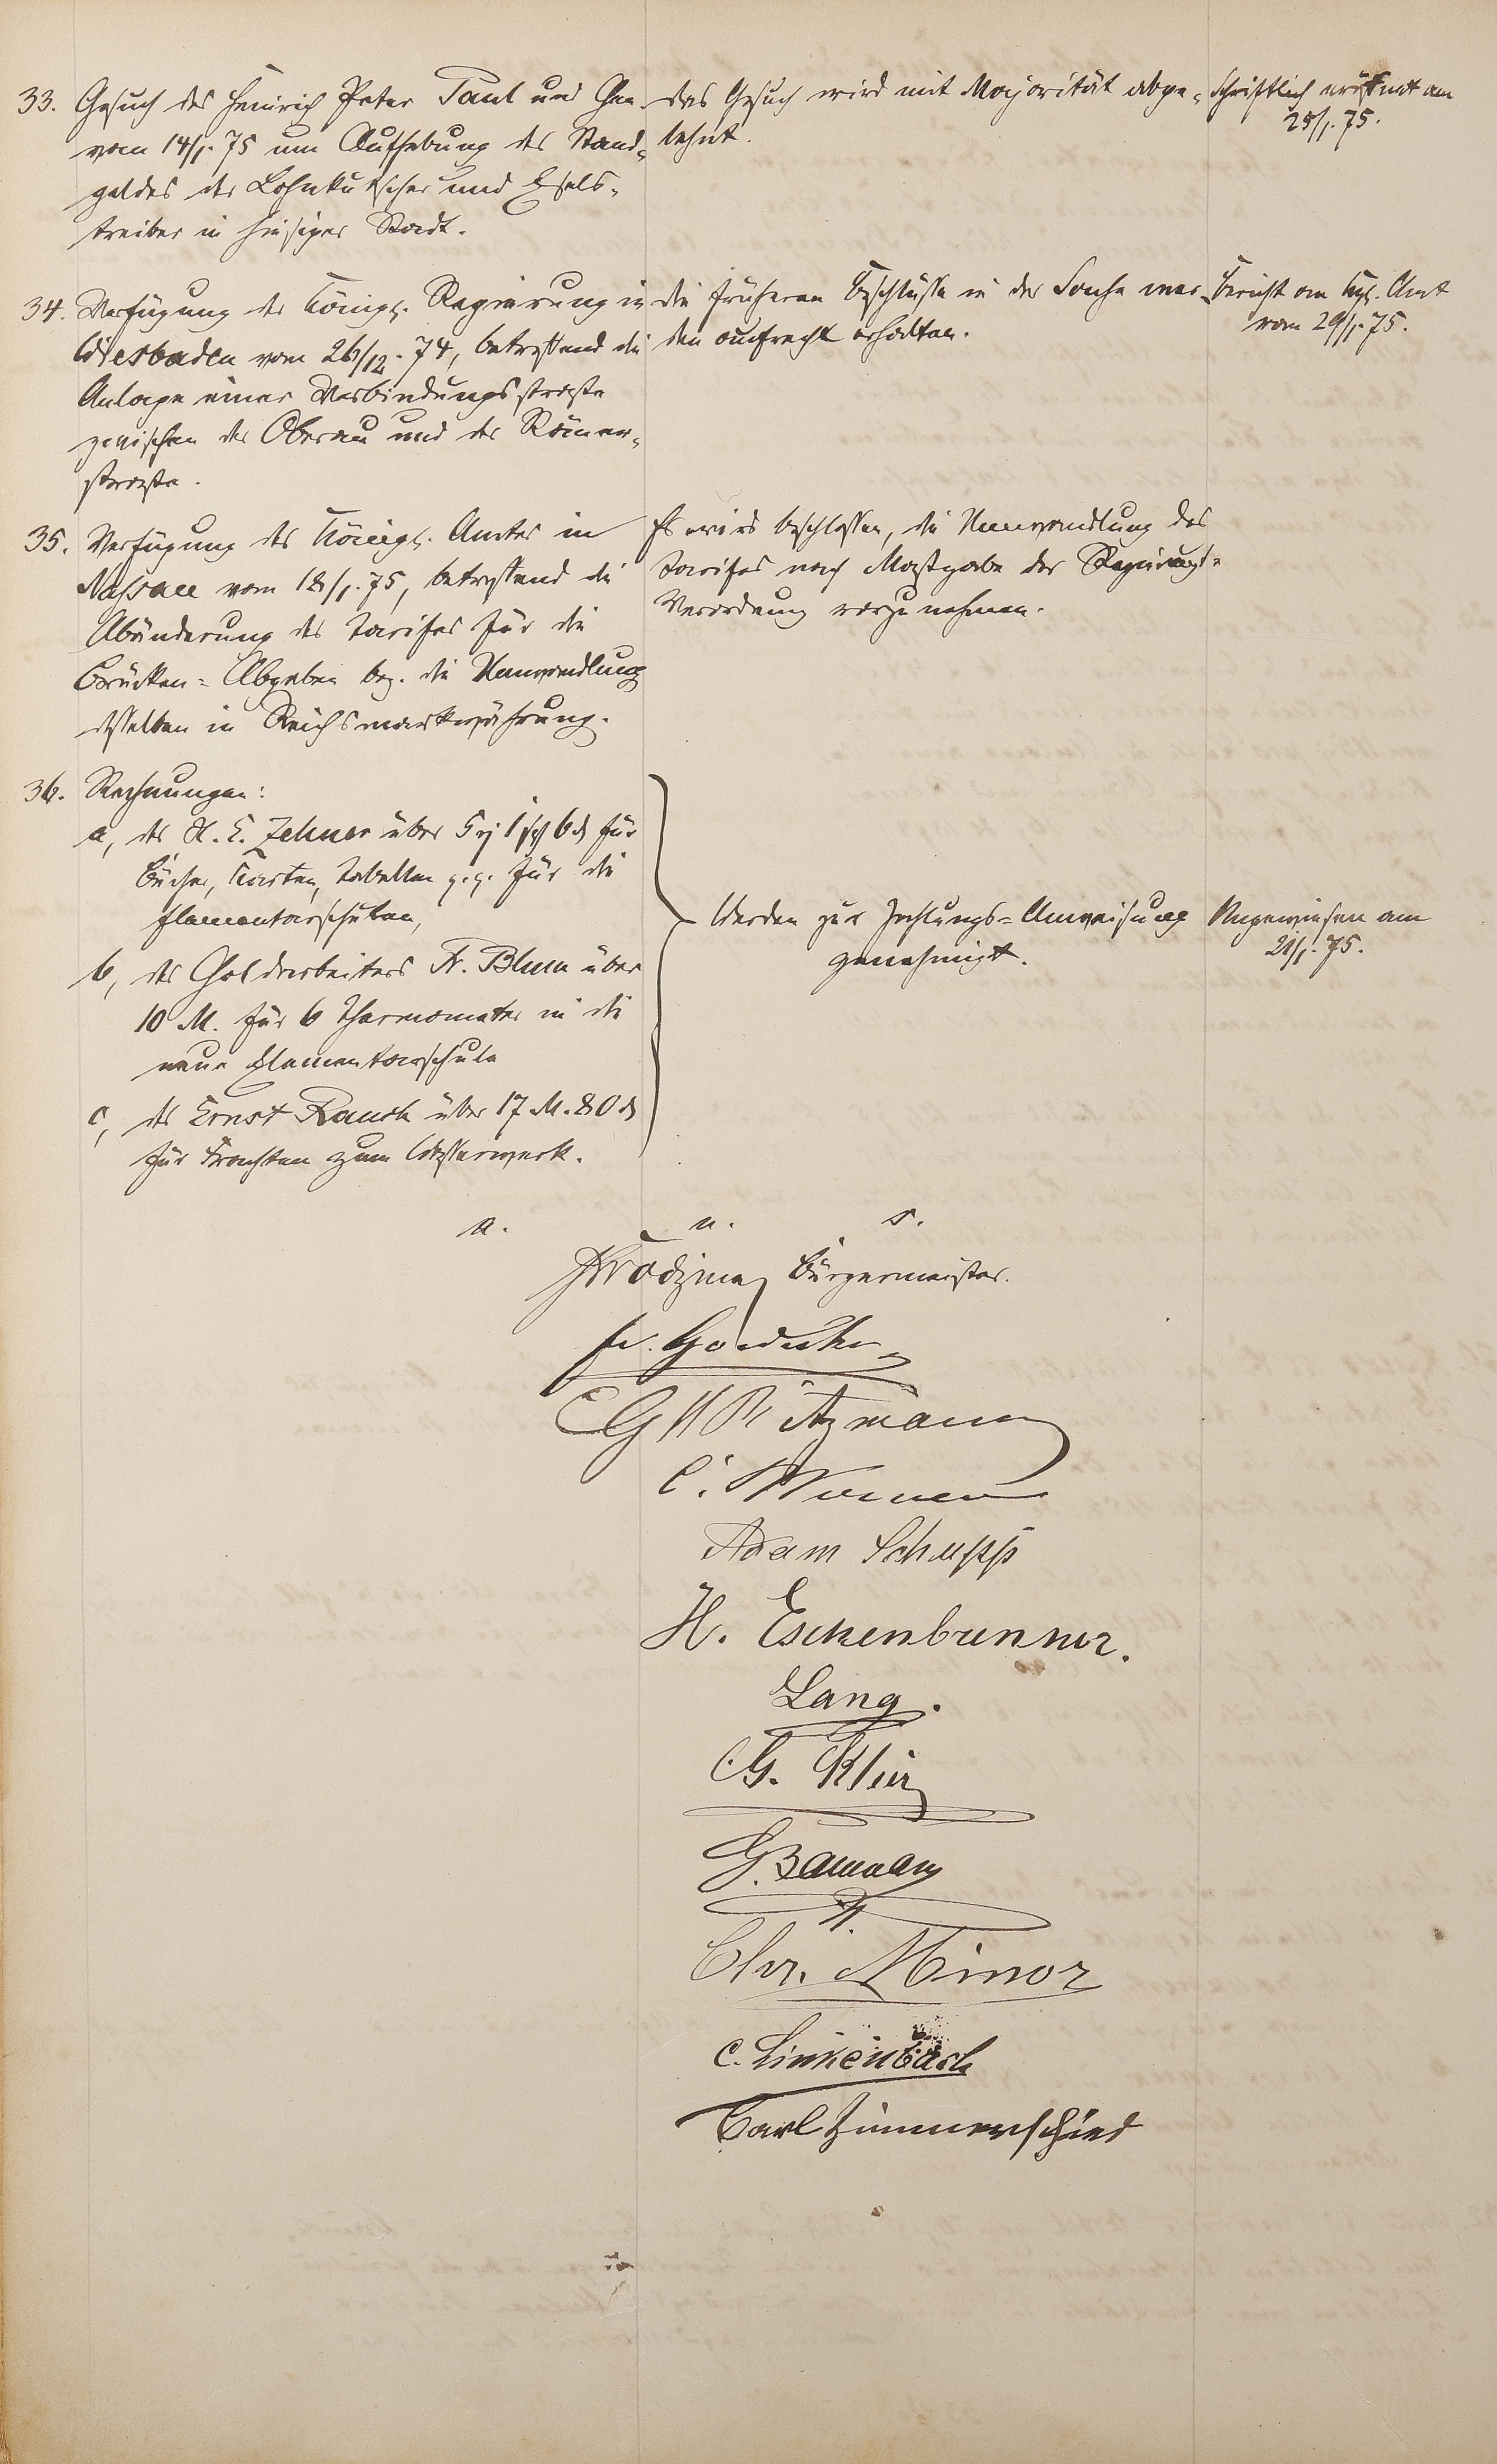 33. Gesuch des Heinrich Peter Paul und Gen.
vom 14/1. 75 um Aufhebung des Stand-
geldes der Lohnkutscher und Esels-
treiber in hiesiger Stadt.
das Gesuch wird mit Majorität abge-
lehnt.
Schriftlich eröffnet am
25/1. 75.
34. Verfügung der Königl. Regierung in
Wiesbaden vom 26/12. 74, betreffend die
Anlage einer Verbindungsstraße
zwischen der Oberau und der Römer-
straße.
die früheren Beschlüsse in der Sache wer-
den aufrecht erhalten.
Bericht an Kgl. Amt
vom 29/1. 75.
35. Verfügung des Königl. Amtes in
Nassau vom 18/1. 75, betreffend die
Abänderung des Tarifes für die
Brücken-Abgaben bez. die Umwandlung
desselben in Reichsmarkwährung.
Es wird beschlossen, die Umwandlung des
Tarifes nach Maßgabe der Regierungs-
Verordnung vorzunehmen.
36. Rechnungen:
a, des H. E. Zehner über 5 1 6 für
Bücher, Karten, Tabellen für die
Elementarschulen,
b, des Goldarbeiters Fr. Blum über
10 M. für 6 Thermometer in die
neue Elementarschule
c, des Ernst Rauch über 17 M. 80
für Frachten zum Wasserwerk.
Werden zur Zahlungs-Anweisung
genehmigt.
Angewiesen am
21/1. 75.
a. u. s.
Bürgermeister.
C. Werner
Adam Schupp
H. Eschenbrenner.
Lang.
G. Baumann
Chr. Minor
C. Linkenbach
Carl Zimmerschied